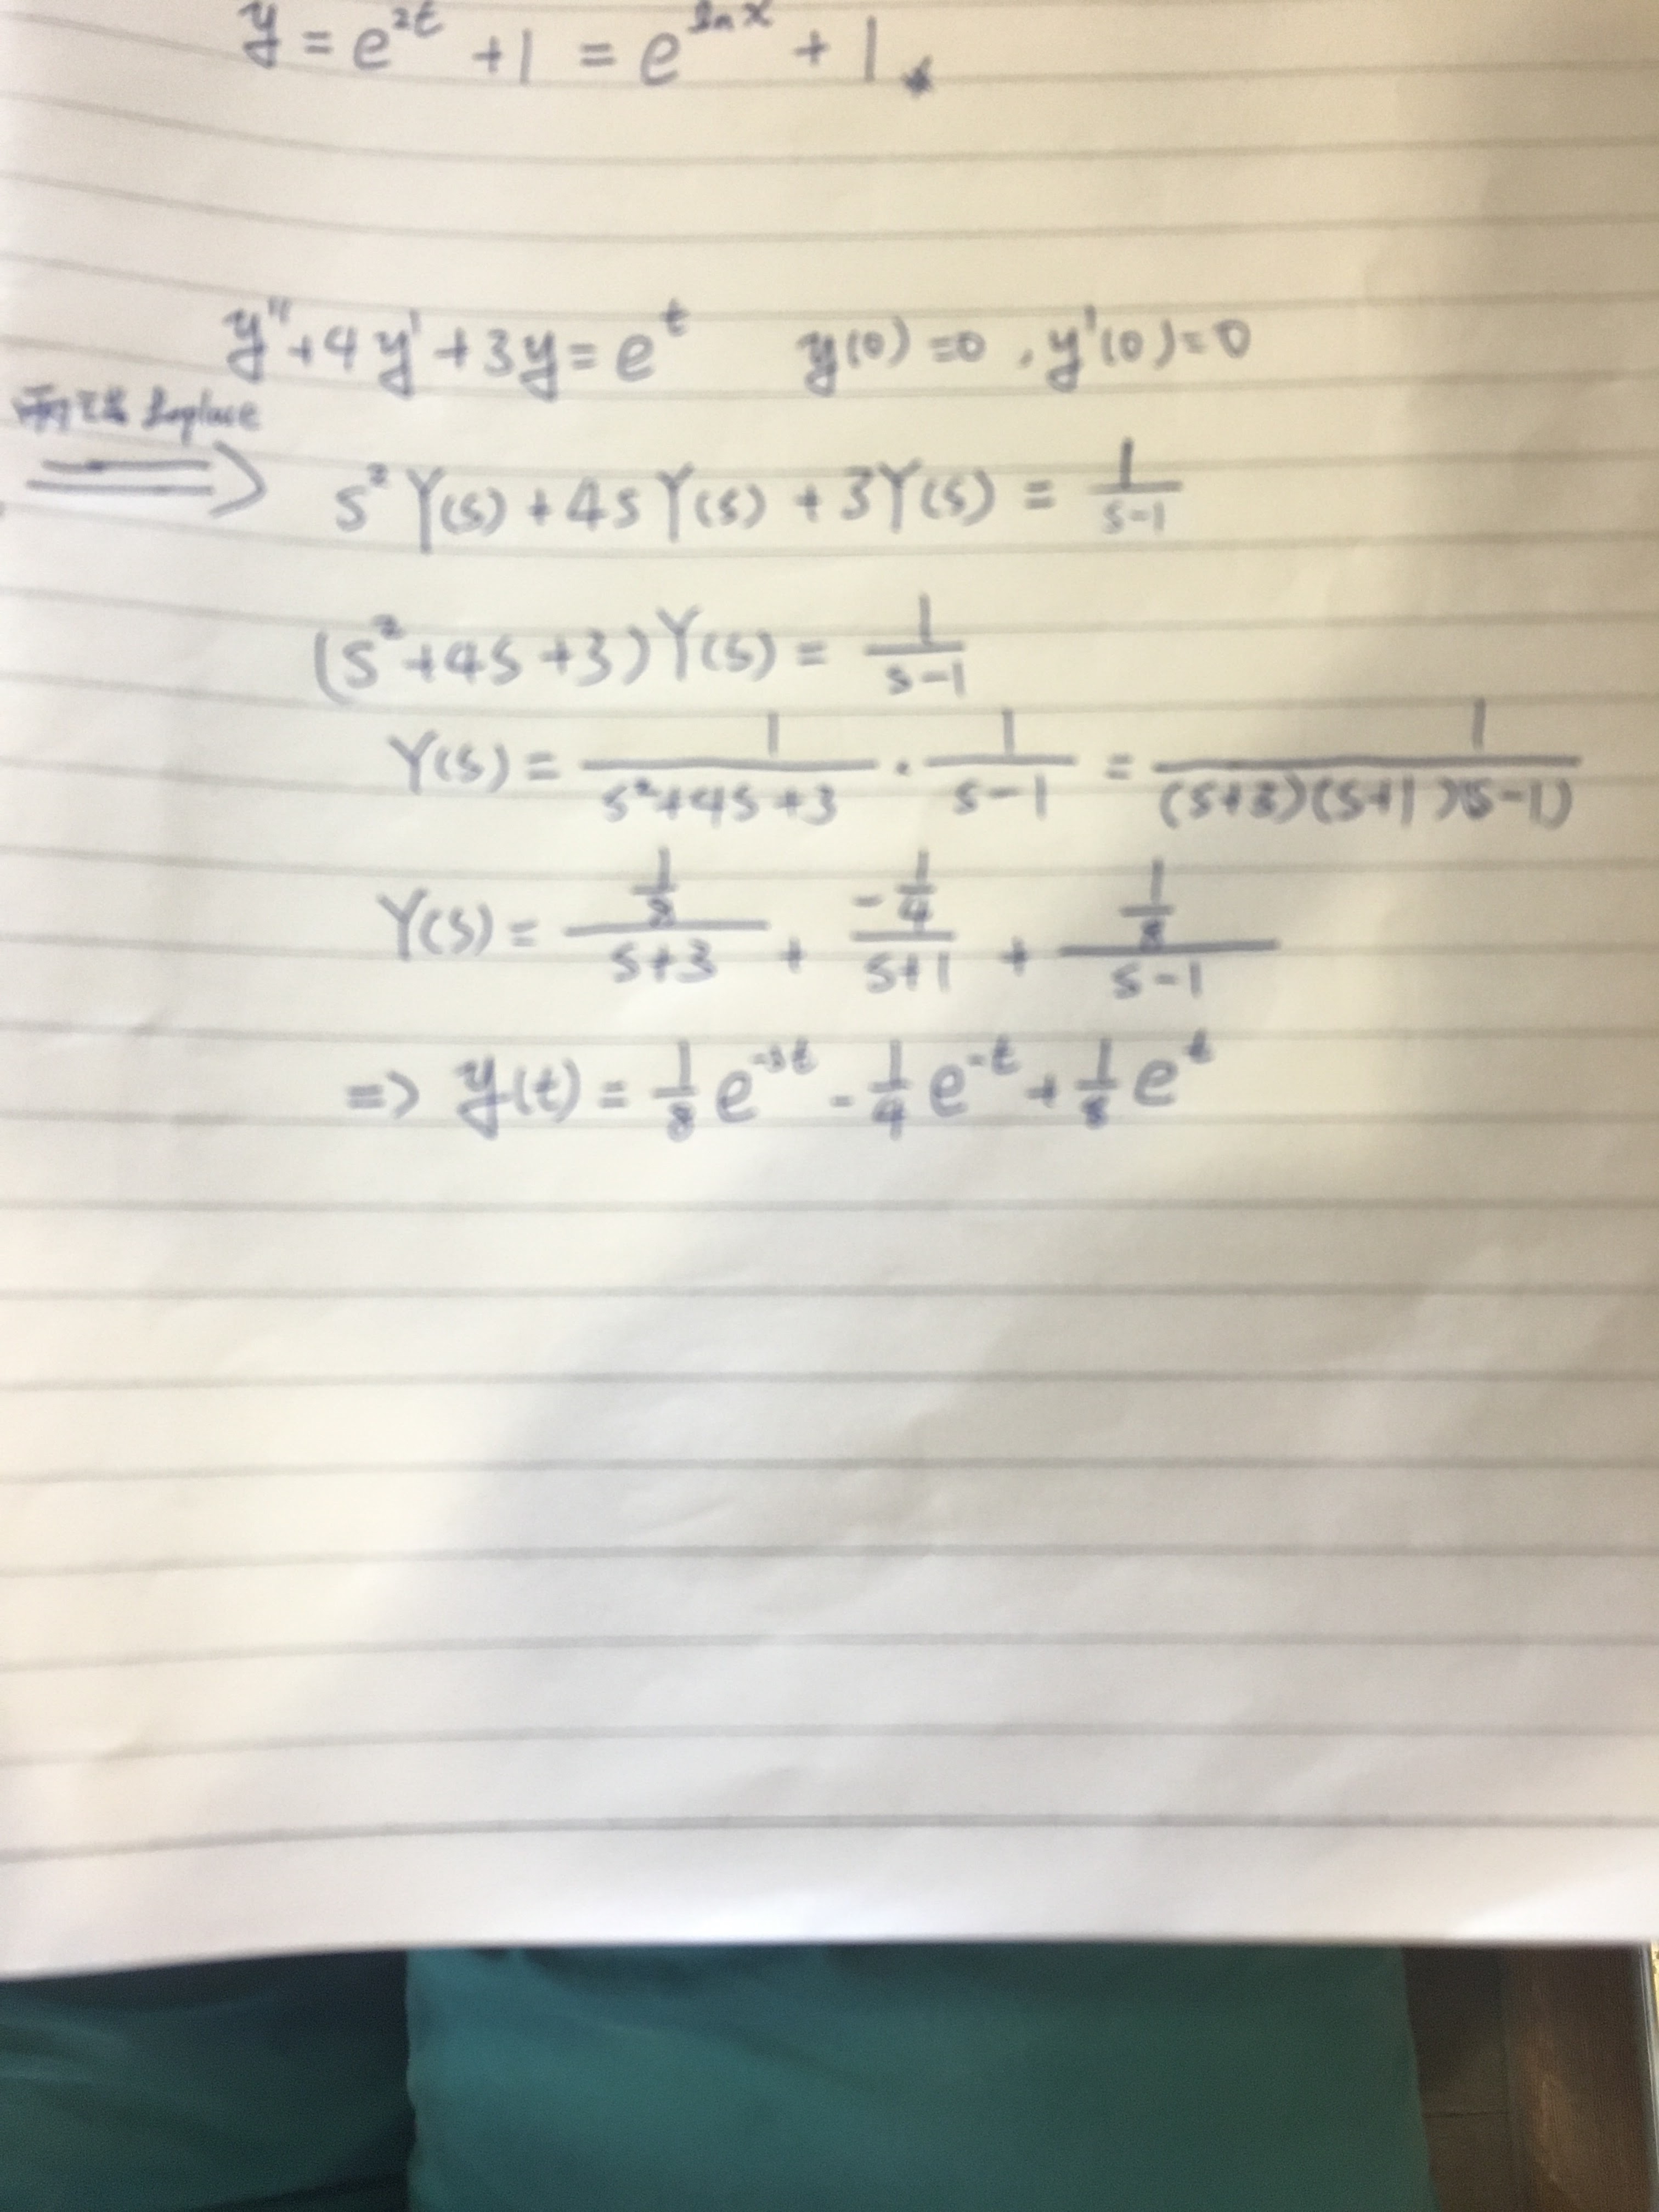 y = e^{2t} + 1 = e^{ln x} + 1
y'' + 4y' + 3y = e^t    y(0) = 0, y'(0) = 0
Laplace
⟹ s² Y(s) + 4s Y(s) + 3Y(s) = 1/(s-1)
(s² + 4s + 3) Y(s) = 1/(s-1)
Y(s) = 1/(s²+4s+3) · 1/(s-1) = 1/((s+3)(s+1)(s-1))
Y(s) = (1/8)/(s+3) + (-1/4)/(s+1) + (1/8)/(s-1)
=> y(t) = 1/8 e^{-3t} - 1/4 e^{-t} + 1/8 e^t